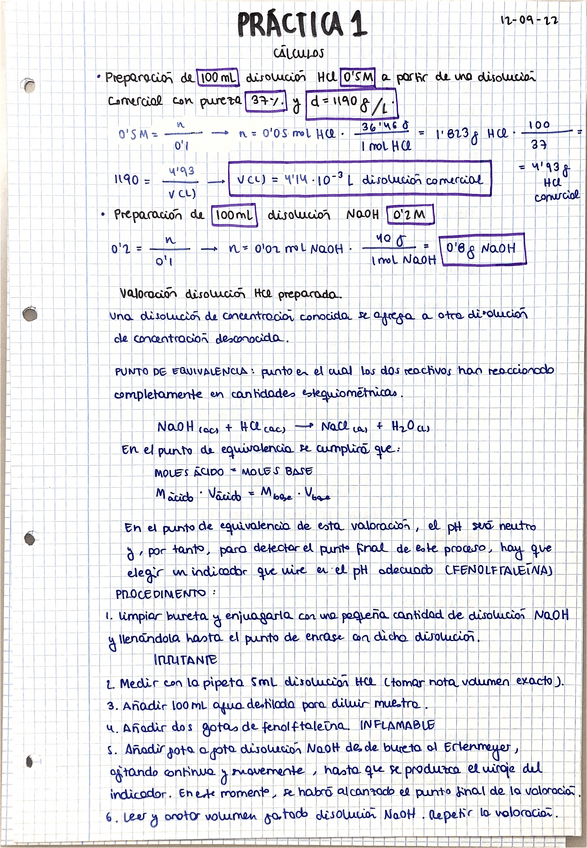 PRÁCTICA 1
12-09-22
CÁLCULOS
· Preparación de 100 mL disolución HCl 0'5M a partir de una disolución
comercial con pureza 37% y d = 1190 g/L.
0'5M = n / 0'1 → n = 0'05 mol HCl · 36'46 g / 1 mol HCl = 1'823 g HCl · 100 / 37 =
= 4'93 g HCl comercial
1190 = 4'93 / V(L) → V(L) = 4'14 · 10⁻³ L disolución comercial
· Preparación de 100 mL disolución NaOH 0'2M
0'2 = n / 0'1 → n = 0'02 mol NaOH · 40 g / 1 mol NaOH = 0'8 g NaOH
Valoración disolución HCl preparada.
Una disolución de concentración conocida se agrega a otra disolución
de concentración desconocida.
PUNTO DE EQUIVALENCIA: punto en el cual los dos reactivos han reaccionado
completamente en cantidades estequiométricas.
NaOH (ac) + HCl (ac) → NaCl (s) + H₂O (l)
En el punto de equivalencia se cumplirá que:
MOLES ÁCIDO = MOLES BASE
Mácido · Vácido = Mbase · Vbase
En el punto de equivalencia de esta valoración, el pH será neutro
y, por tanto, para detectar el punto final de este proceso, hay que
elegir un indicador que vire en el pH adecuado (FENOLFTALEÍNA)
PROCEDIMENTO:
1. Limpiar bureta y enjuagarla con una pequeña cantidad de disolución NaOH
y llenándola hasta el punto de enrase con dicha disolución.
IRRITANTE
2. Medir con la pipeta 5mL disolución HCl (tomar nota volumen exacto).
3. Añadir 100 mL agua destilada para diluir muestra.
4. Añadir dos gotas de fenolftaleína. INFLAMABLE
5. Añadir gota a gota disolución NaOH desde bureta al Erlenmeyer,
agitando continua y suavemente, hasta que se produzca el viraje del
indicador. En este momento, se habrá alcanzado el punto final de la valoración.
6. Leer y anotar volumen gastado disolución NaOH. Repetir la valoración.